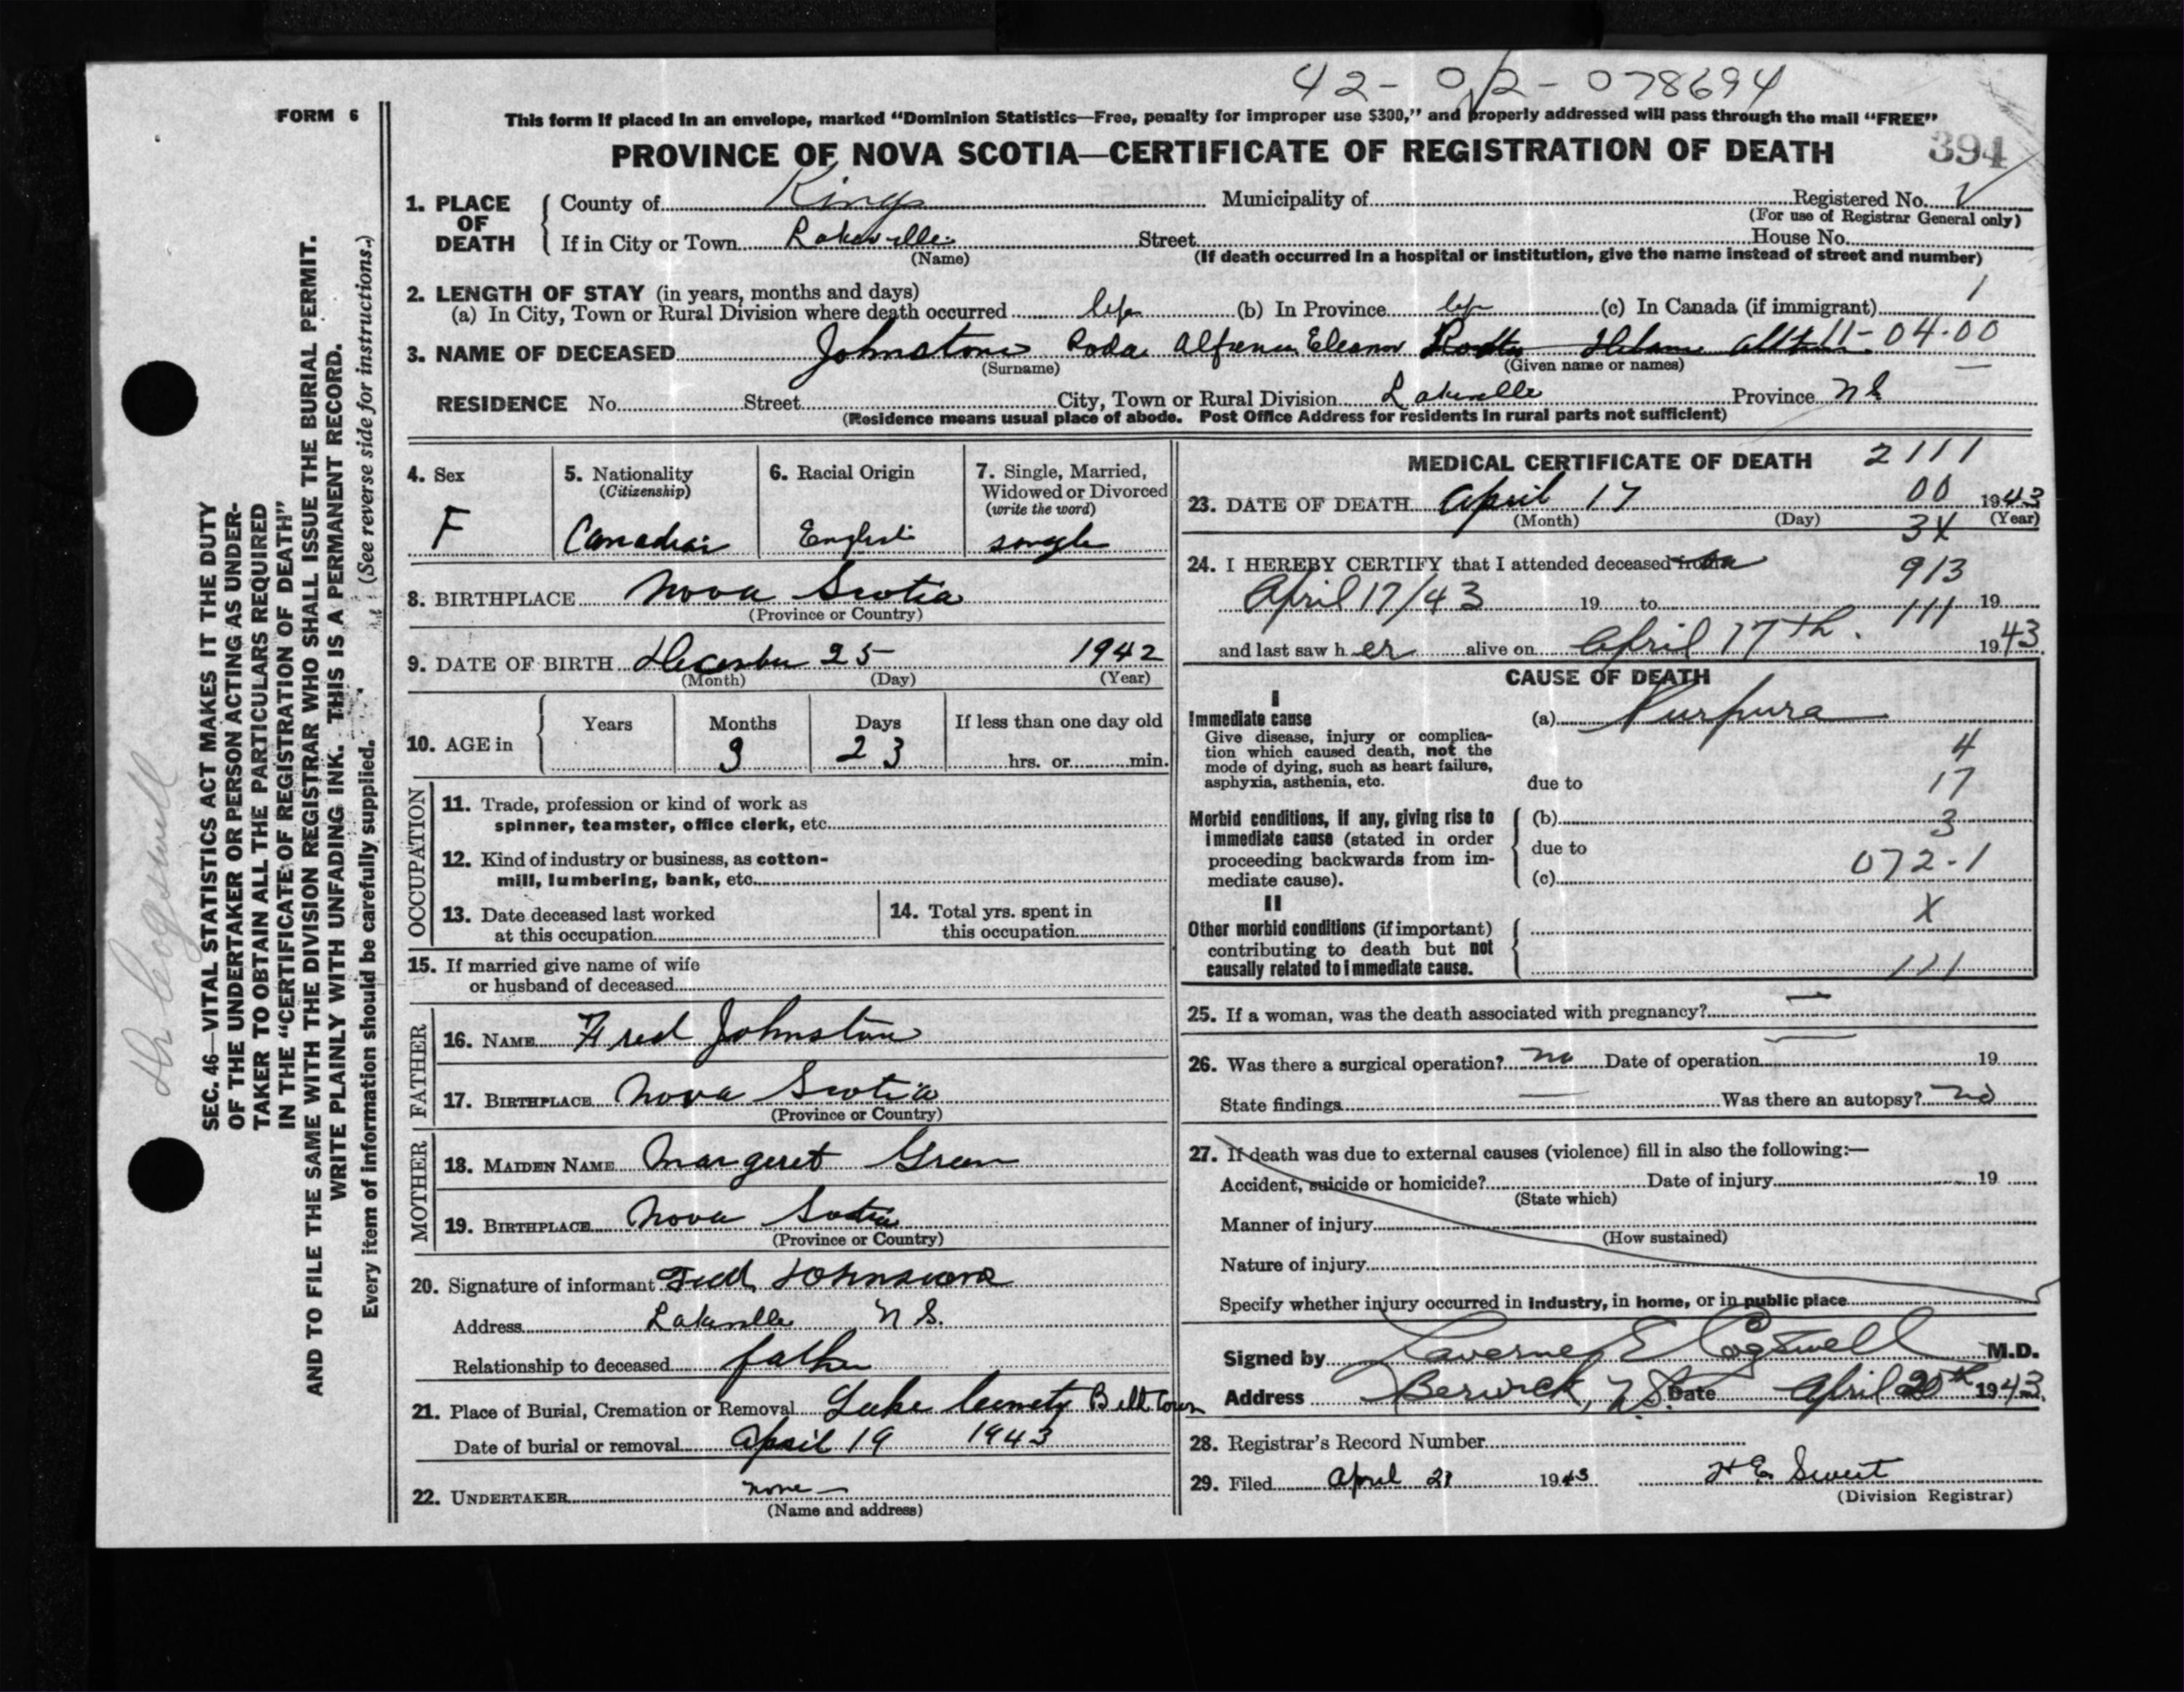 42-02-078694
FORM 6
This form if placed in an envelope, marked "Dominion Statistics—Free, penalty for improper use $300," and properly addressed will pass through the mail "FREE"
PROVINCE OF NOVA SCOTIA—CERTIFICATE OF REGISTRATION OF DEATH 394
1. PLACE OF DEATH
County of Kings Municipality of Registered No.
(For use of Registrar General only)
If in City or Town Lakeville Street House No.
(Name) (If death occurred in a hospital or institution, give the name instead of street and number)
2. LENGTH OF STAY (in years, months and days) 1
(a) In City, Town or Rural Division where death occurred life (b) In Province life (c) In Canada (if immigrant)
3. NAME OF DECEASED Johnstone Roda Eleanor 11-04-00
(Surname) (Given name or names)
RESIDENCE No. Street City, Town or Rural Division Lakeville Province N S
(Residence means usual place of abode. Post Office Address for residents in rural parts not sufficient)
4. Sex F
5. Nationality (Citizenship) Canadian
6. Racial Origin English
7. Single, Married, Widowed or Divorced (write the word) single
8. BIRTHPLACE Nova Scotia
(Province or Country)
9. DATE OF BIRTH December 25 1942
(Month) (Day) (Year)
10. AGE in Years Months Days If less than one day old
3 23 hrs. or min.
OCCUPATION
11. Trade, profession or kind of work as
spinner, teamster, office clerk, etc.
12. Kind of industry or business, as cotton-
mill, lumbering, bank, etc.
13. Date deceased last worked
at this occupation
14. Total yrs. spent in
this occupation
15. If married give name of wife
or husband of deceased
FATHER
16. NAME Fred Johnstone
17. BIRTHPLACE Nova Scotia
(Province or Country)
MOTHER
18. MAIDEN NAME Margeret Green
19. BIRTHPLACE Nova Scotia
(Province or Country)
20. Signature of informant Fred Johnstone
Address Lakeville N S.
Relationship to deceased father
21. Place of Burial, Cremation or Removal
Date of burial or removal April 19 1943
22. UNDERTAKER none
(Name and address)
MEDICAL CERTIFICATE OF DEATH 2111
00
23. DATE OF DEATH April 17 1943
(Month) (Day) (Year)
3X
24. I HEREBY CERTIFY that I attended deceased from on
913
April 17/43 19 to 19
111
and last saw h er alive on April 17th. 1943
CAUSE OF DEATH
I
Immediate cause
Give disease, injury or complica-
tion which caused death, not the
mode of dying, such as heart failure,
asphyxia, asthenia, etc.
(a) Purpura
4
due to 17
Morbid conditions, if any, giving rise to
immediate cause (stated in order
proceeding backwards from im-
mediate cause).
(b) 3
due to
072-1
(c)
X
II
Other morbid conditions (if important)
contributing to death but not
causally related to immediate cause.
111
25. If a woman, was the death associated with pregnancy? —
26. Was there a surgical operation? no Date of operation — 19
State findings — Was there an autopsy? no
27. If death was due to external causes (violence) fill in also the following:—
Accident, suicide or homicide? Date of injury 19
(State which)
Manner of injury
(How sustained)
Nature of injury
Specify whether injury occurred in industry, in home, or in public place
Signed by Laverne E Cogswell M.D.
Address Berwick, N.S. Date April 20th 1943.
28. Registrar's Record Number
29. Filed April 21 1943 H E Swet
(Division Registrar)
SEC. 46—VITAL STATISTICS ACT MAKES IT THE DUTY
OF THE UNDERTAKER OR PERSON ACTING AS UNDER-
TAKER TO OBTAIN ALL THE PARTICULARS REQUIRED
IN THE "CERTIFICATE OF REGISTRATION OF DEATH"
AND TO FILE THE SAME WITH THE DIVISION REGISTRAR WHO SHALL ISSUE THE BURIAL PERMIT.
WRITE PLAINLY WITH UNFADING INK. THIS IS A PERMANENT RECORD.
Every item of information should be carefully supplied. (See reverse side for instructions.)
Dr Cogswell